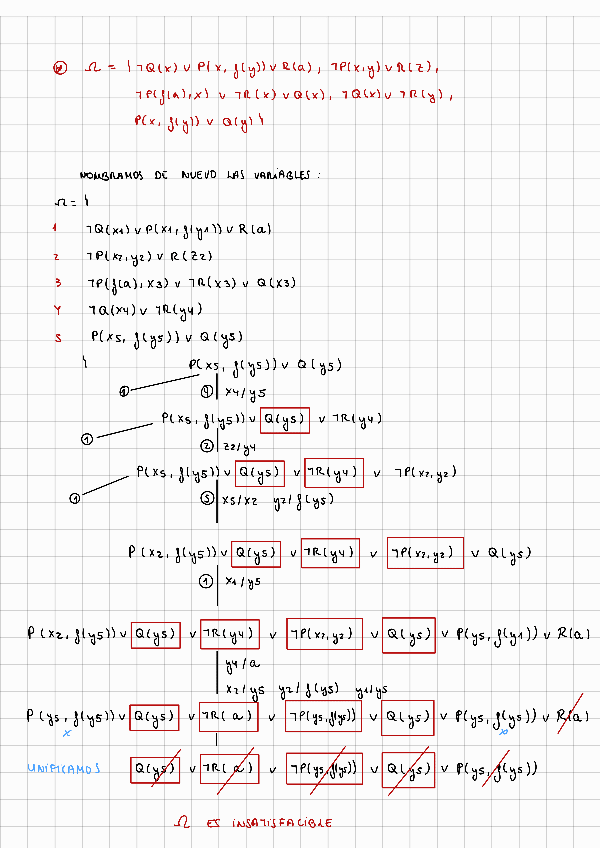 * Ω = { ¬Q(x) ∨ P(x, f(y)) ∨ R(a), ¬P(x,y) ∨ R(z),
¬P(f(a),x) ∨ ¬R(x) ∨ Q(x), ¬Q(x) ∨ ¬R(y),
P(x, f(y)) ∨ Q(y) }
NOMBRAMOS DE NUEVO LAS VARIABLES:
Ω = {
1 ¬Q(x1) ∨ P(x1, f(y1)) ∨ R(a)
2 ¬P(x2,y2) ∨ R(z2)
3 ¬P(f(a), x3) ∨ ¬R(x3) ∨ Q(x3)
4 ¬Q(x4) ∨ ¬R(y4)
5 P(x5, f(y5)) ∨ Q(y5)
} P(x5, f(y5)) ∨ Q(y5)
④ x4/y5
P(x5, f(y5)) ∨ Q(y5) ∨ ¬R(y4)
① ② z2/y4
P(x5, f(y5)) ∨ Q(y5) ∨ ¬R(y4) ∨ ¬P(x2,y2)
① ⑤ x5/x2 y2/f(y5)
P(x2, f(y5)) ∨ Q(y5) ∨ ¬R(y4) ∨ ¬P(x2,y2) ∨ Q(y5)
① x1/y5
P(x2, f(y5)) ∨ Q(y5) ∨ ¬R(y4) ∨ ¬P(x2,y2) ∨ Q(y5) ∨ P(y5, f(y1)) ∨ R(a)
y4/a
x2/y5 y2/f(y5) y1/y5
P(y5, f(y5)) ∨ Q(y5) ∨ ¬R(a) ∨ ¬P(y5,f(y5)) ∨ Q(y5) ∨ P(y5, f(y5)) ∨ R(a)
x x
UNIFICAMOS Q(y5) ∨ ¬R(a) ∨ ¬P(y5,f(y5)) ∨ Q(y5) ∨ P(y5, f(y5))
Ω ES INSATISFACIBLE